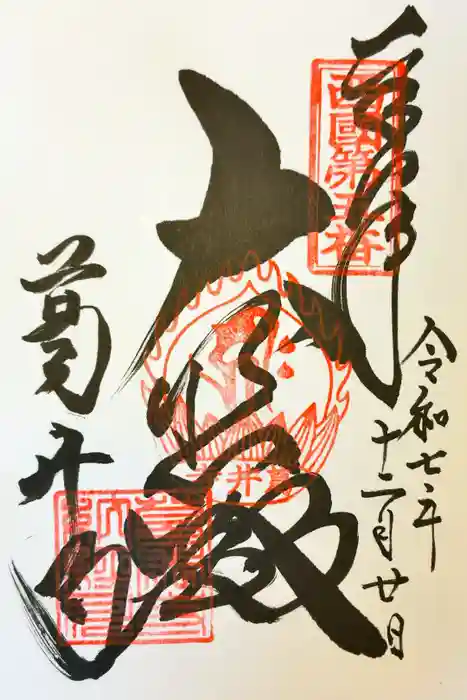 奉拝
西國第五番
令和七年
十二月廿日
大悲殿
葛井寺